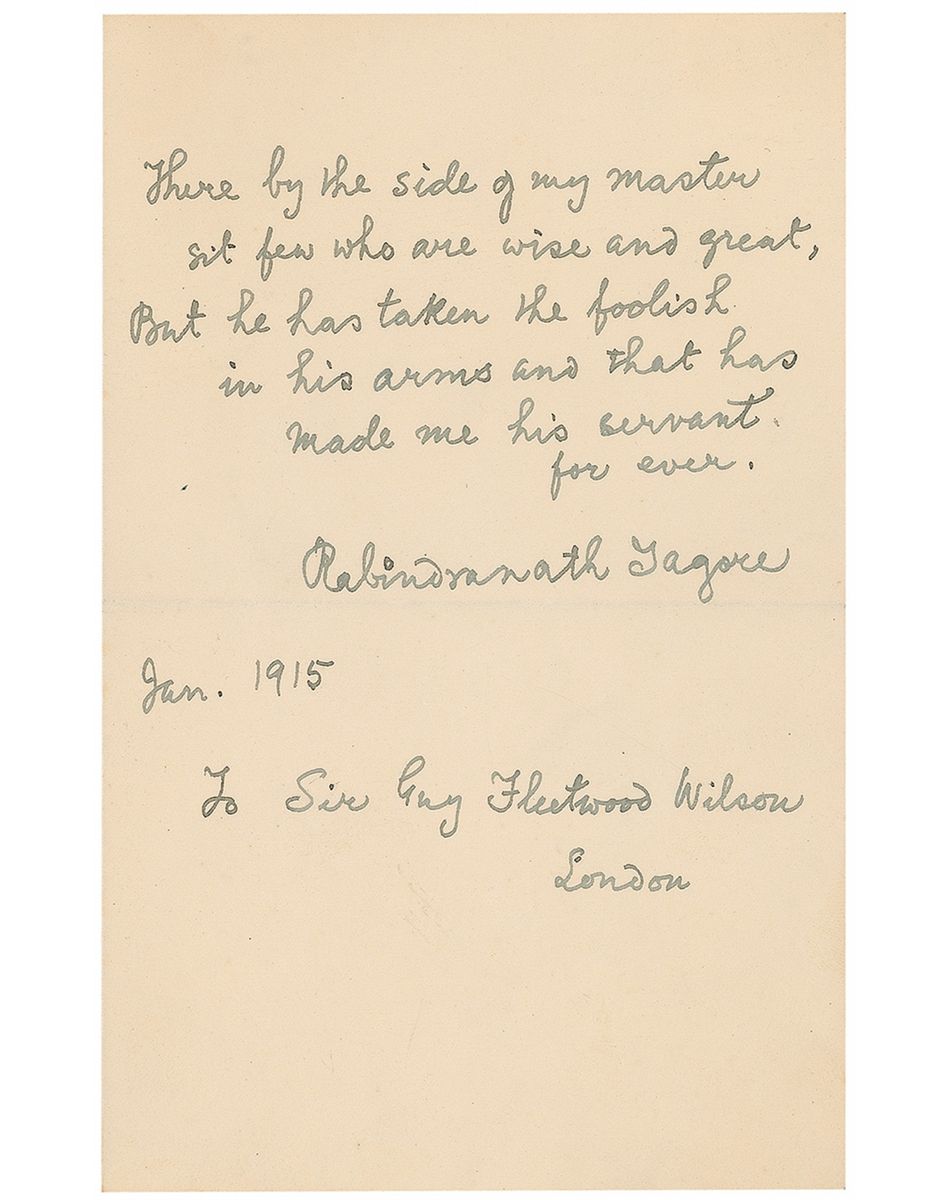 There by the side of my master
sit few who are wise and great,
But he has taken the foolish
in his arms and that has
made me his servant.
for ever.
Rabindranath Tagore
Jan. 1915
To Sir Guy Fleetwood Wilson
London